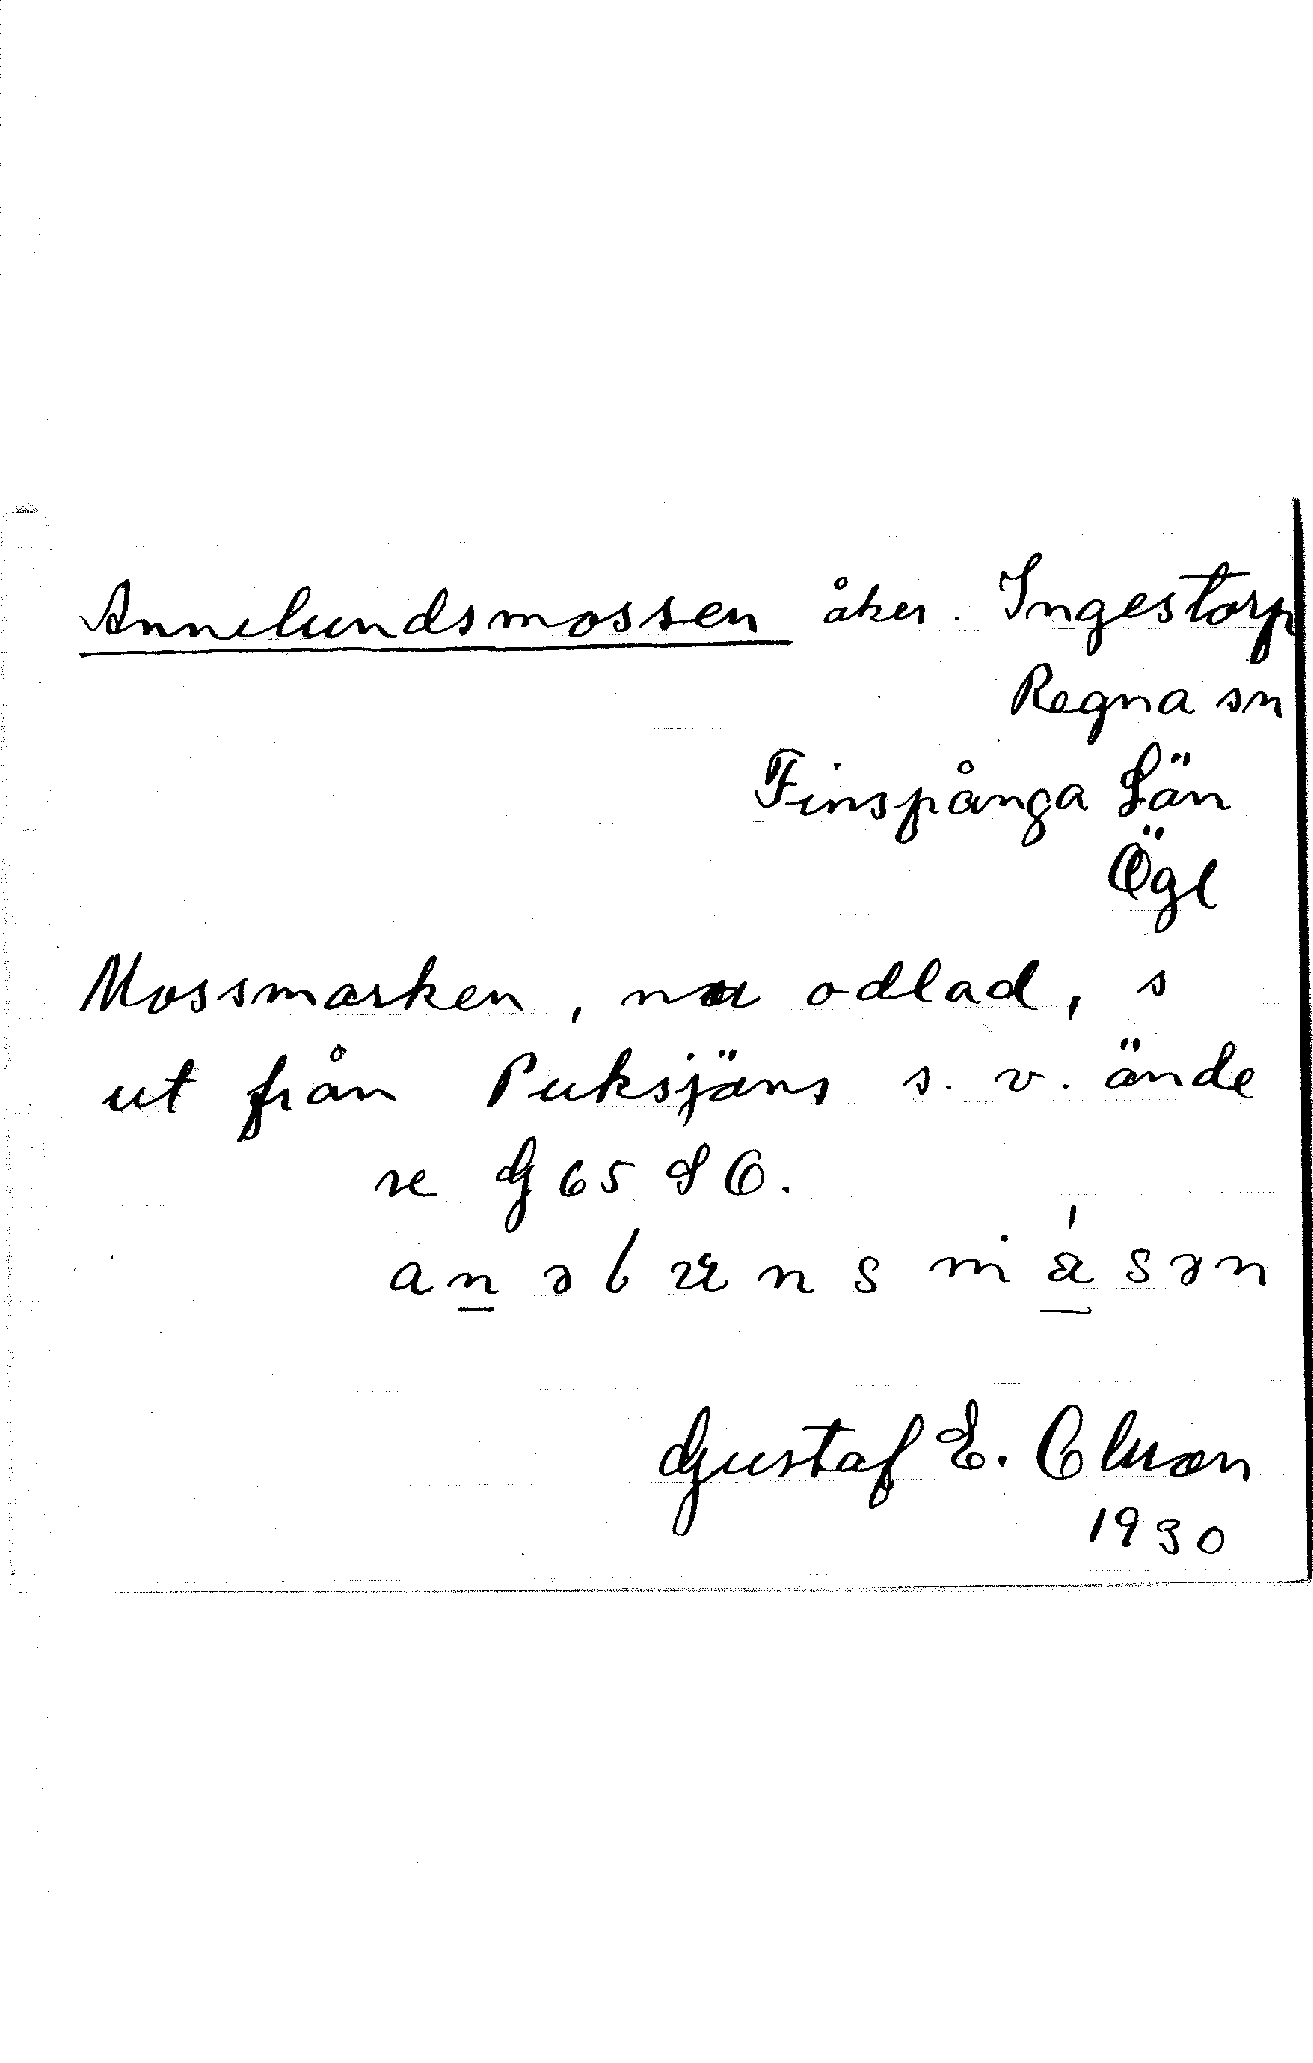 Annelundsmossen åker. Ingestorp
Regna sn
Finspånga Län
Ögl
Mossmarken, nu odlad, s
ut från Puksjäns s.v. ände
se G65 SO.
Gustaf E. Olsson
1930